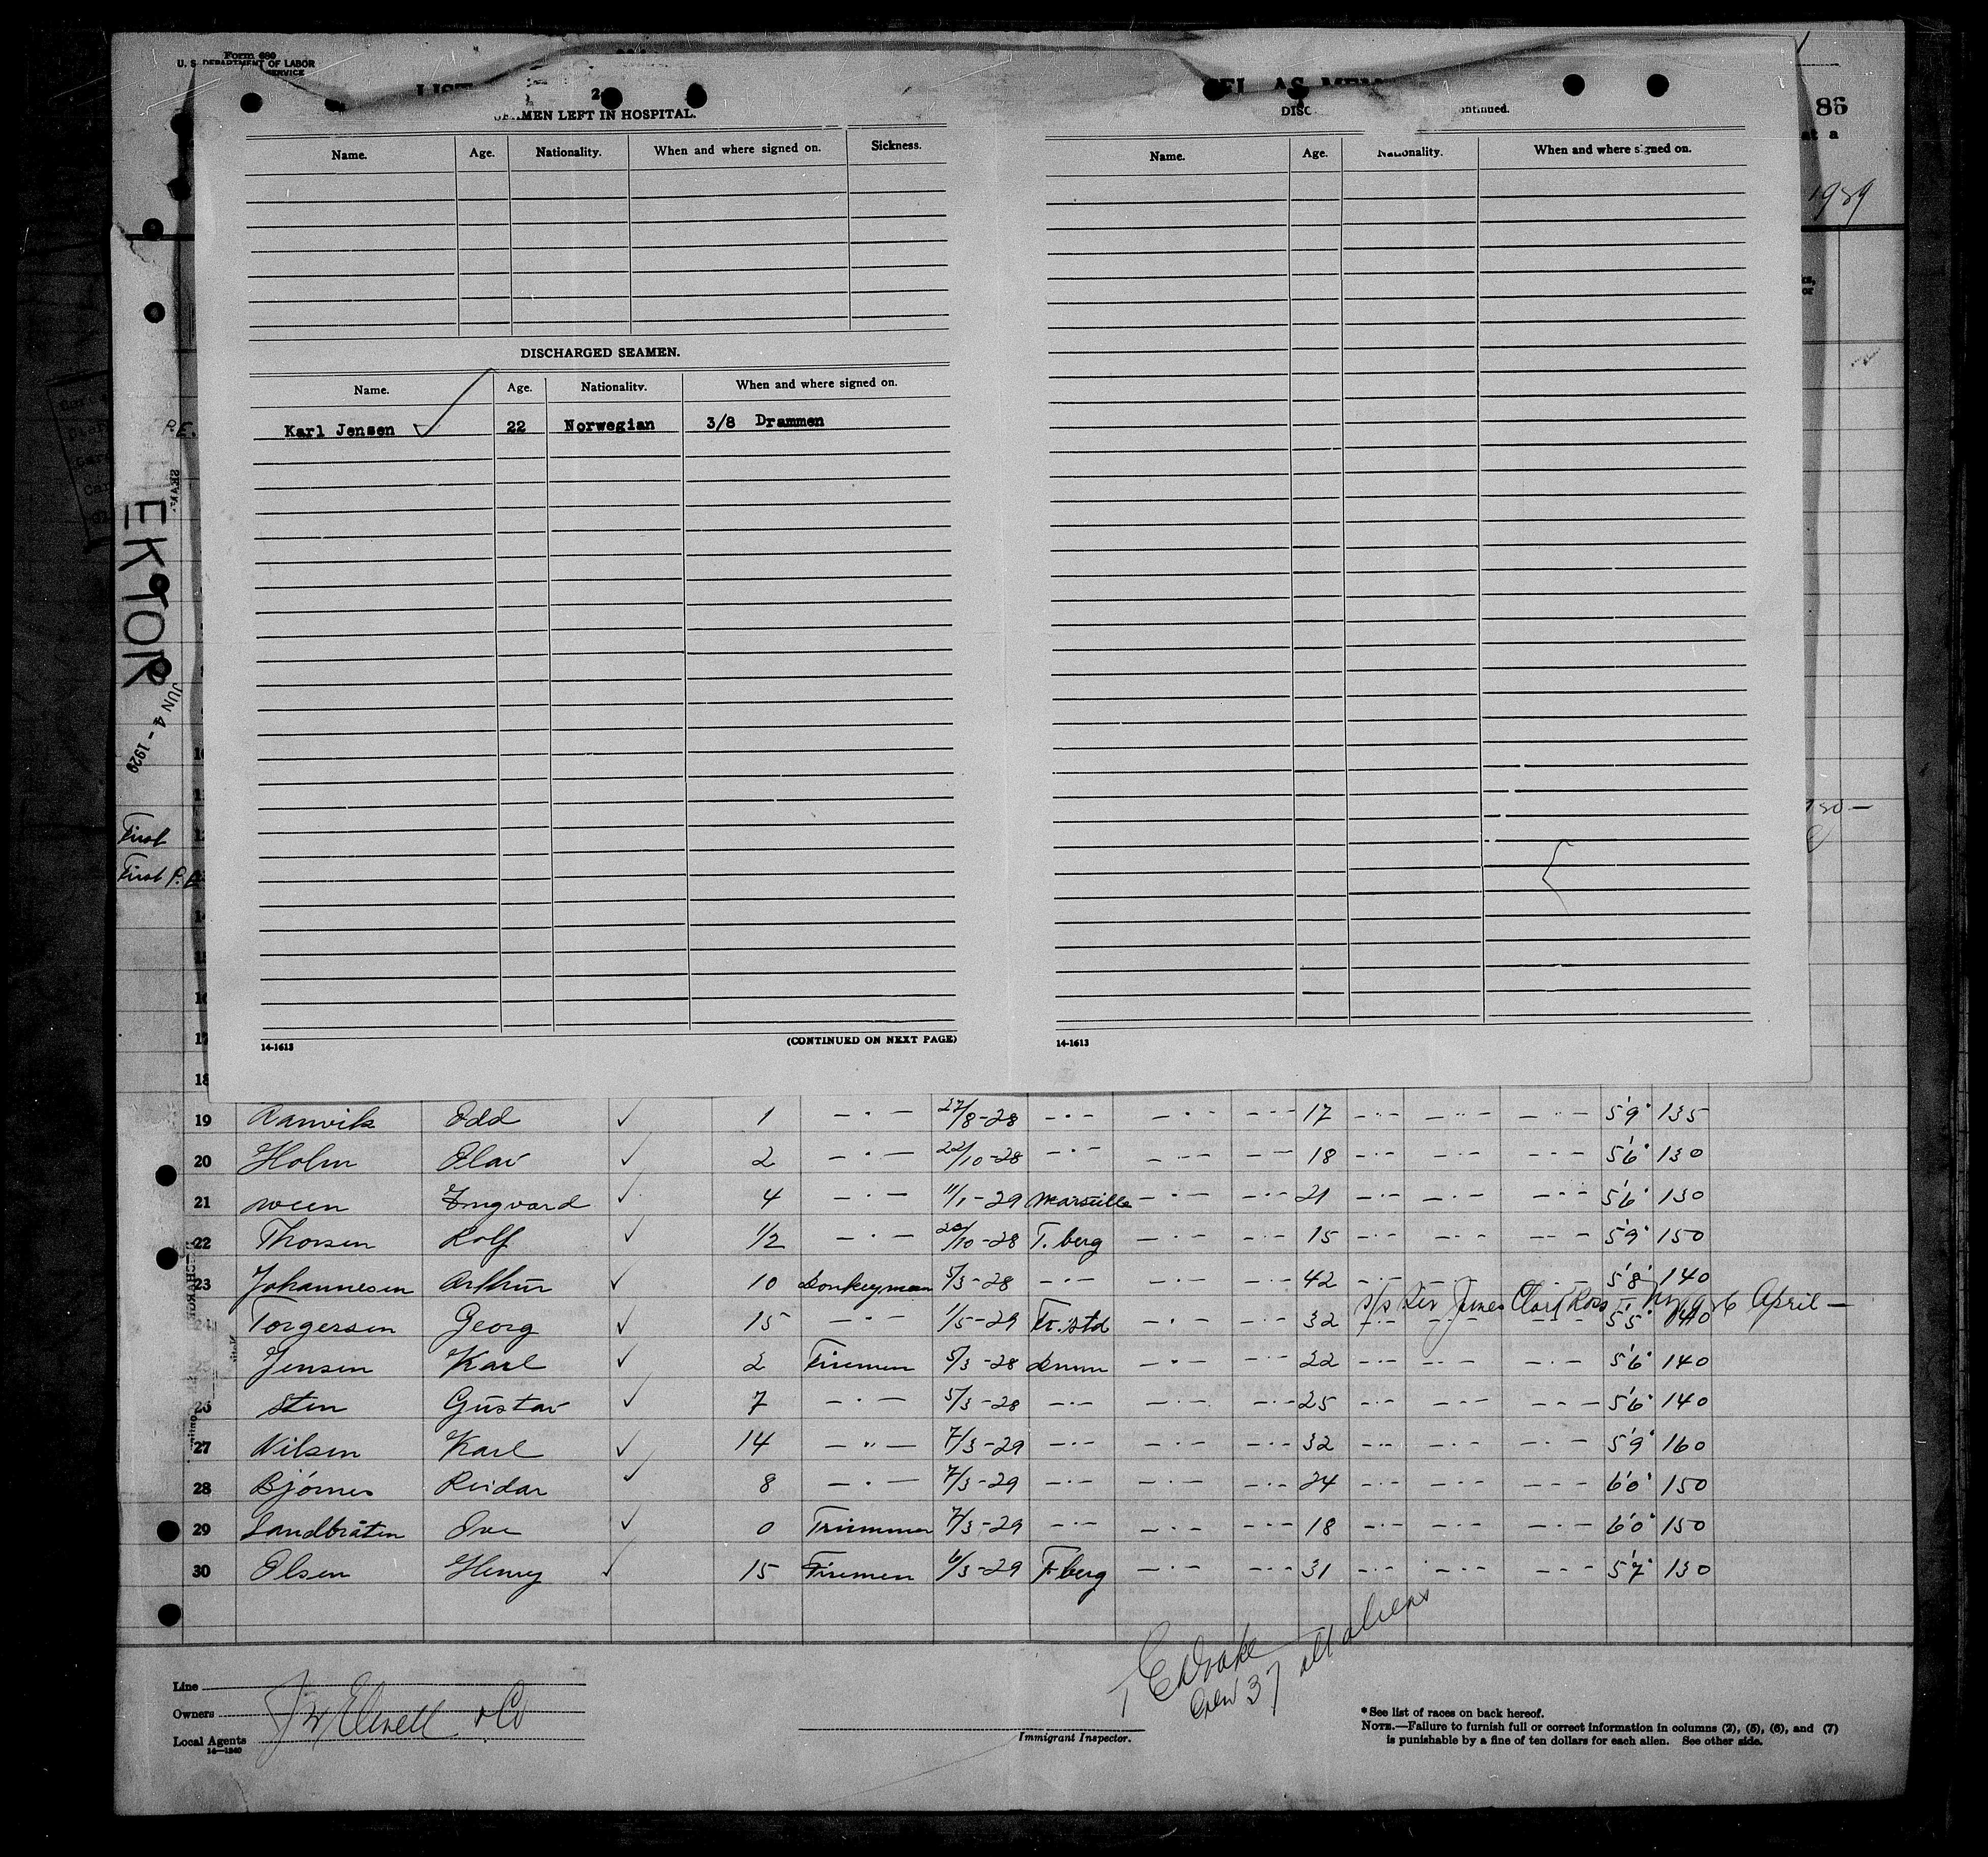 Form 680
U. S. DEPARTMENT OF LABOR
SERVICE
LIST
2
MEN LEFT IN HOSPITAL.
Name. Age. Nationality. When and where signed on. Sickness.
DISCHARGED SEAMEN.
Name. Age. Nationality. When and where signed on.
Karl Jensen 22 Norwegian 3/8 Drammen
14-1613 (CONTINUED ON NEXT PAGE)
EL AS MEM
DISC ontinued.
Name. Age. Nationality. When and where signed on.
14-1613
86
at a
1929
P.E.
EKTOR
JUN 4 - 1929
First
First P.E
10
11
12
13
14
15
16
17
18
19 Aanvik Odd ✓ 1 — · — 27/8-28 — · — — · — — · — 17 — · — — · — — · — 5'9" 135
20 Holm Olav ✓ 2 — · — 22/10-28 — · — — · — — · — 18 — · — — · — — · — 5'6" 130
21 ween Ingvard ✓ 4 — · — 11/1-29 Marseille — · — — · — 21 — · — — · — — · — 5'6" 130
22 Thorsen Rolf ✓ 1/2 — · — 20/10-28 T. berg — · — — · — 15 — · — — · — — · — 5'9" 150
23 Johannesen Arthur ✓ 10 Donkeyman 5/3-28 — · — — · — — · — 42 — · — — · — — · — 5'8" 140
s/s Sir James Clark Ross — 6 April —
24 Torgersen Georg ✓ 15 — · — 1/5-29 Fr. std — · — — · — 32 — · — — · — — · — 5'5" 140
Jensen Karl ✓ 2 Firemen 5/3-28 dmm — · — — · — 22 — · — — · — — · — 5'6" 140
26 Sten Gustav ✓ 7 — · — 5/3-28 — · — — · — — · — 25 — · — — · — — · — 5'6" 140
27 Nilsen Karl ✓ 14 — " — 7/3-29 — · — — · — — · — 32 — · — — · — — · — 5'9" 160
28 Bjørnes Reidar ✓ 8 — · — 7/3-29 — · — — · — — · — 24 — · — — · — — · — 6'0" 150
29 Landbråten Ove ✓ 0 Trimmer 7/3-29 — · — — · — — · — 18 — · — — · — — · — 6'0" 150
30 Olsen Henry ✓ 15 Firemen 6/3-29 T berg — · — — · — 31 — · — — · — — · — 5'7" 130
Line
Owners
Local Agents J W Elwell & Co
14—1240
E Drake
Crew 37 all aliens
Immigrant Inspector.
* See list of races on back hereof.
NOTE.—Failure to furnish full or correct information in columns (2), (5), (6), and (7)
is punishable by a fine of ten dollars for each alien. See other side.